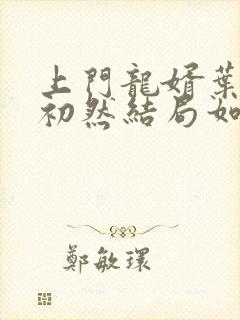 上門龍婿葉
初然結局如
鄭敏環